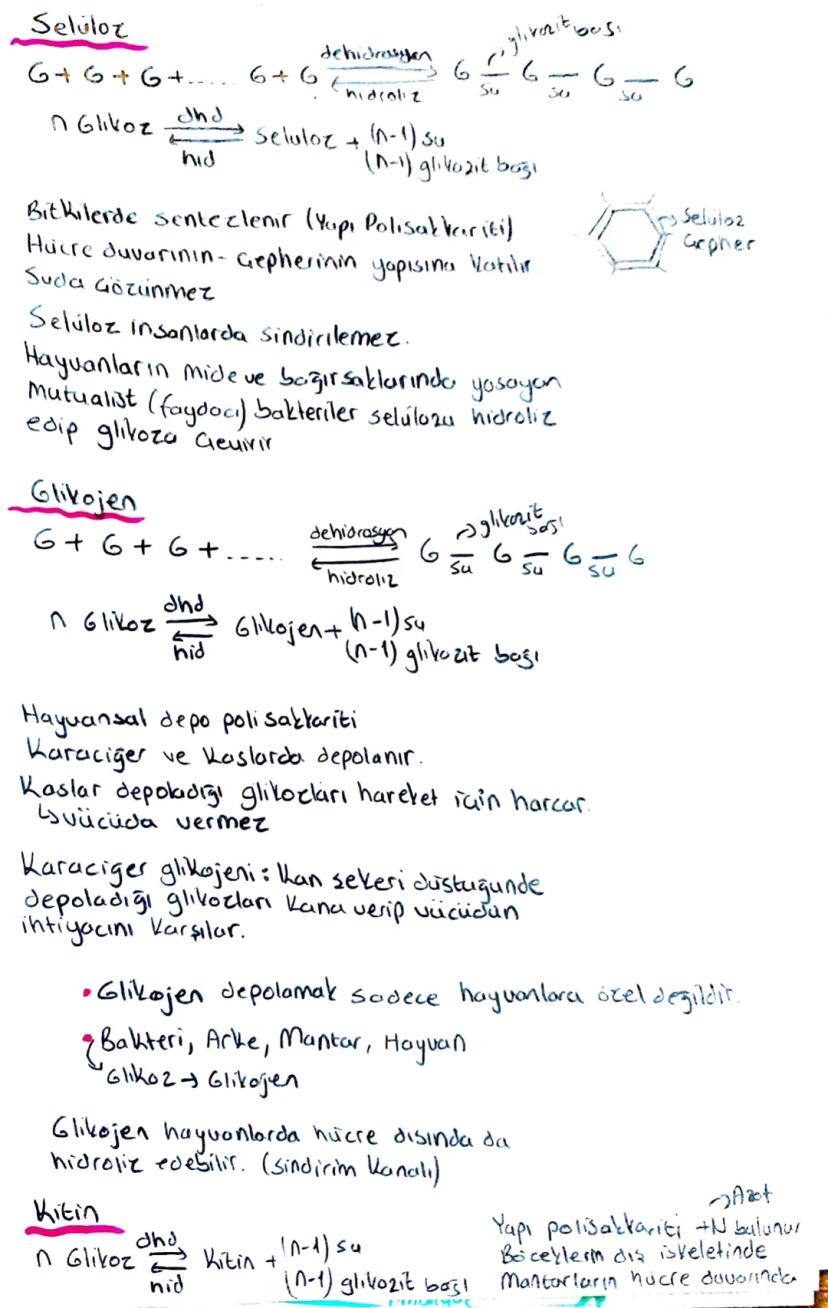 Selüloz
G + G + G + ..... G + G dehidrasyon hidroliz G su G su G su G glikozit bağı
n Glikoz dhd hid Selüloz + (n-1) su
(n-1) glikozit bağı
Bitkilerde sentezlenir (Yapı Polisakkariti)
Hücre duvarının - çepherinin yapısına katılır
Suda çözünmez
Selüloz
çepher
Selüloz insanlarda sindirilemez.
Hayvanların mide ve bağırsaklarında yaşayan
Mutualist (faydacı) bakteriler selülozu hidroliz
edip glikoza çevirir
Glikojen
G + G + G + ...... dehidrasyon hidroliz G su G su G su G glikozit bağı
n Glikoz dhd hid Glikojen + (n-1) su
(n-1) glikozit bağı
Hayvansal depo polisakkariti
Karaciğer ve kaslarda depolanır.
Kaslar depoladığı glikozları hareket için harcar.
↳ vücüda vermez
Karaciğer glikojeni: Kan şekeri düştüğünde
depoladığı glikozları kana verip vücüdun
ihtiyacını karşılar.
• Glikojen depolamak sadece hayvanlara özel değildir.
• Bakteri, Arke, Mantar, Hayvan
Glikoz → Glikojen
Glikojen hayvanlarda hücre dışında da
hidroliz edebilir. (Sindirim kanalı)
Kitin
n Glikoz dhd hid Kitin + (n-1) su
(n-1) glikozit bağı
→ Azot
Yapı polisakkariti +N bulunur
Böceklerin dış iskeletinde
Mantarların hücre duvarında